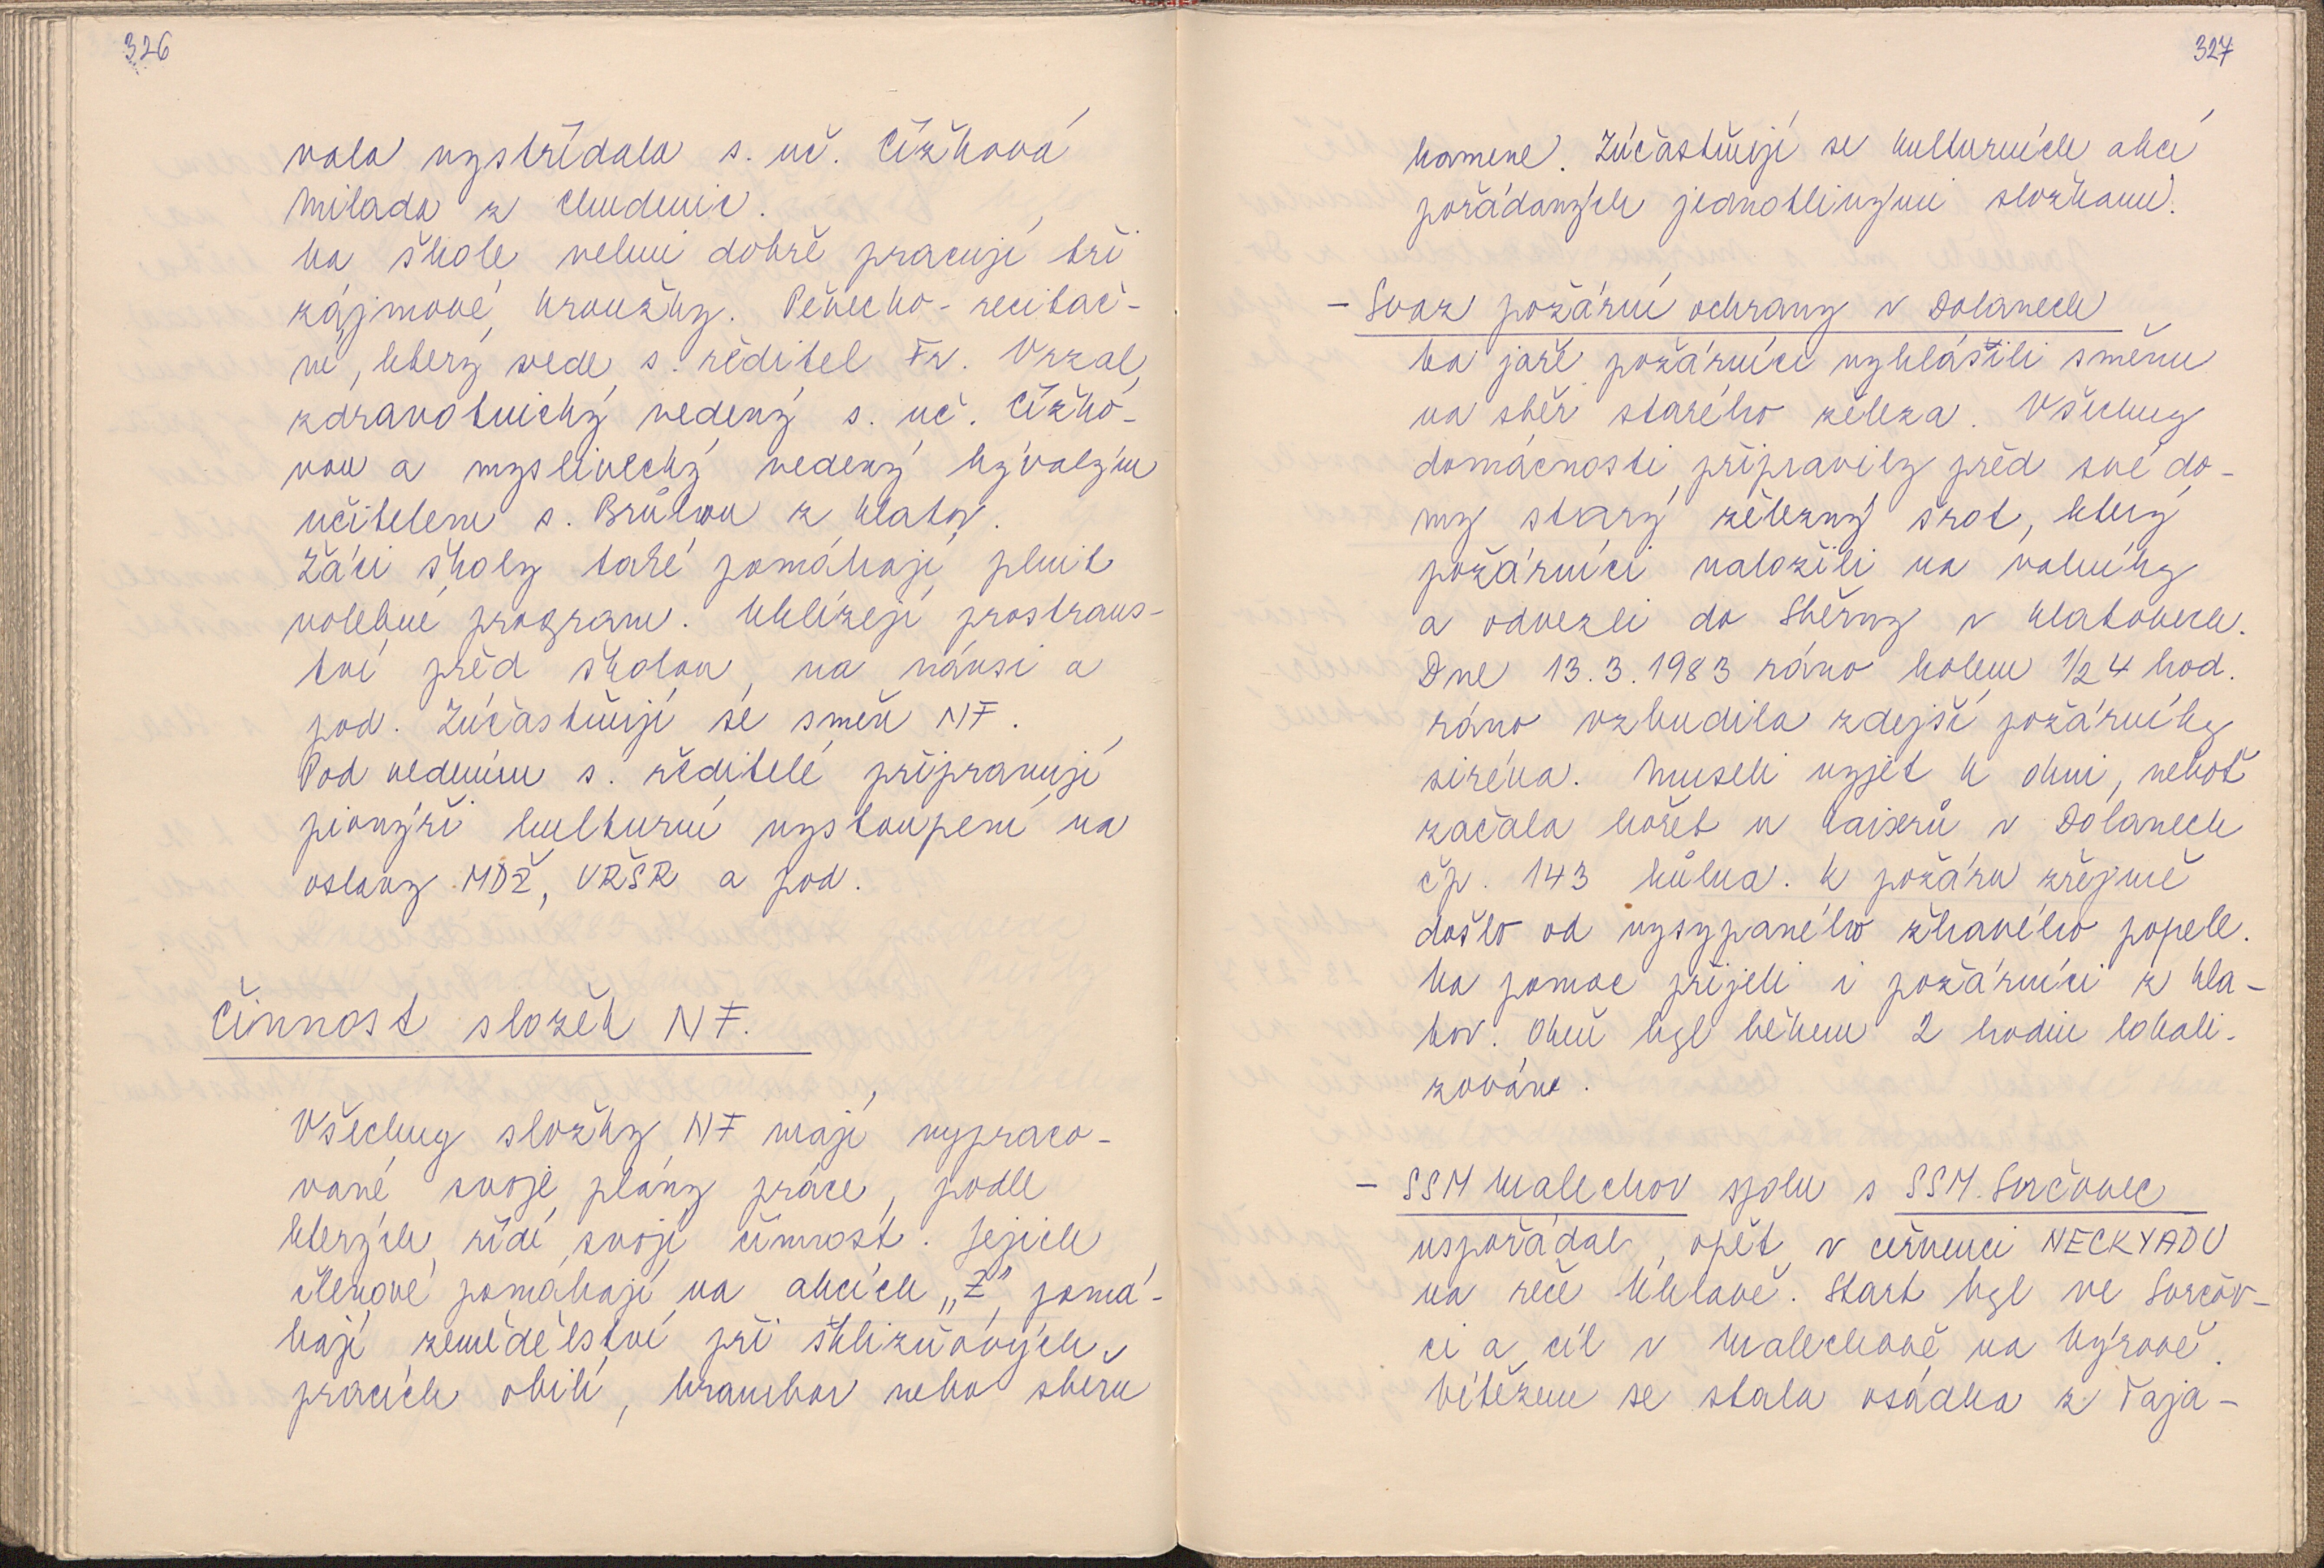 326
vala vystřídala s. uč. Čížková
Milada z Chudenic.
Na škole velmi dobře pracují tři
zájmové kroužky. Pěvecko-recitač-
ní, který vede s. ředitel Fr. Vrzal,
zdravotnický vedený s. uč. Čížko-
vou a myslivecký vedený bývalým
učitelem s. Brůhou z Klatov.
Žáci školy také pomáhají plnit
volební program. Uklízejí prostrans-
tví před školou, na návsi a
pod. Zúčastňují se směn NF.
Pod vedením s. ředitele připravují
pionýři kulturní vystoupení na
oslavy MDŽ, VŘSR a pod.
Činnost složek NF.
Všechny složky NF mají vypraco-
vané svoje plány práce, podle
kterých řídí svoji činnost. Jejich
členové pomáhají na akcích „Z", pomá-
hají zemědělství při sklizňových
pracích obilí, brambor nebo sběru
327
kamene. Zúčastňují se kulturních akcí
pořádaných jednotlivými složkami.
- Svaz požární ochrany v Dolanech
Na jaře požárníci vyhlásili směnu
na sběr starého železa. Všechny
domácnosti připravily před své do-
my starý železný šrot, který
požárníci naložili na valníky
a odvezli do Sběrny v Klatovech.
Dne 13.3.1983 ráno kolem 1/2 4 hod.
ráno vzbudila zdejší požárníky
siréna. Museli vyjet k ohni, neboť
začala hořet u Laixrů v Dolanech
čp. 143 kůlna. K požáru zřejmě
došlo od vysypaného žhavého popele.
Na pomoc přijeli i požárníci z Kla-
tov. Oheň byl během 2 hodin lokali-
zován.
- SSM Malechov spolu s SSM Svrčovec
uspořádal opět v červenci NECKYÁDU
na řece Úhlavě. Start byl ve Svrčov-
ci a cíl v Malechově na Výrově.
Vítězem se stala osádka z Taja-